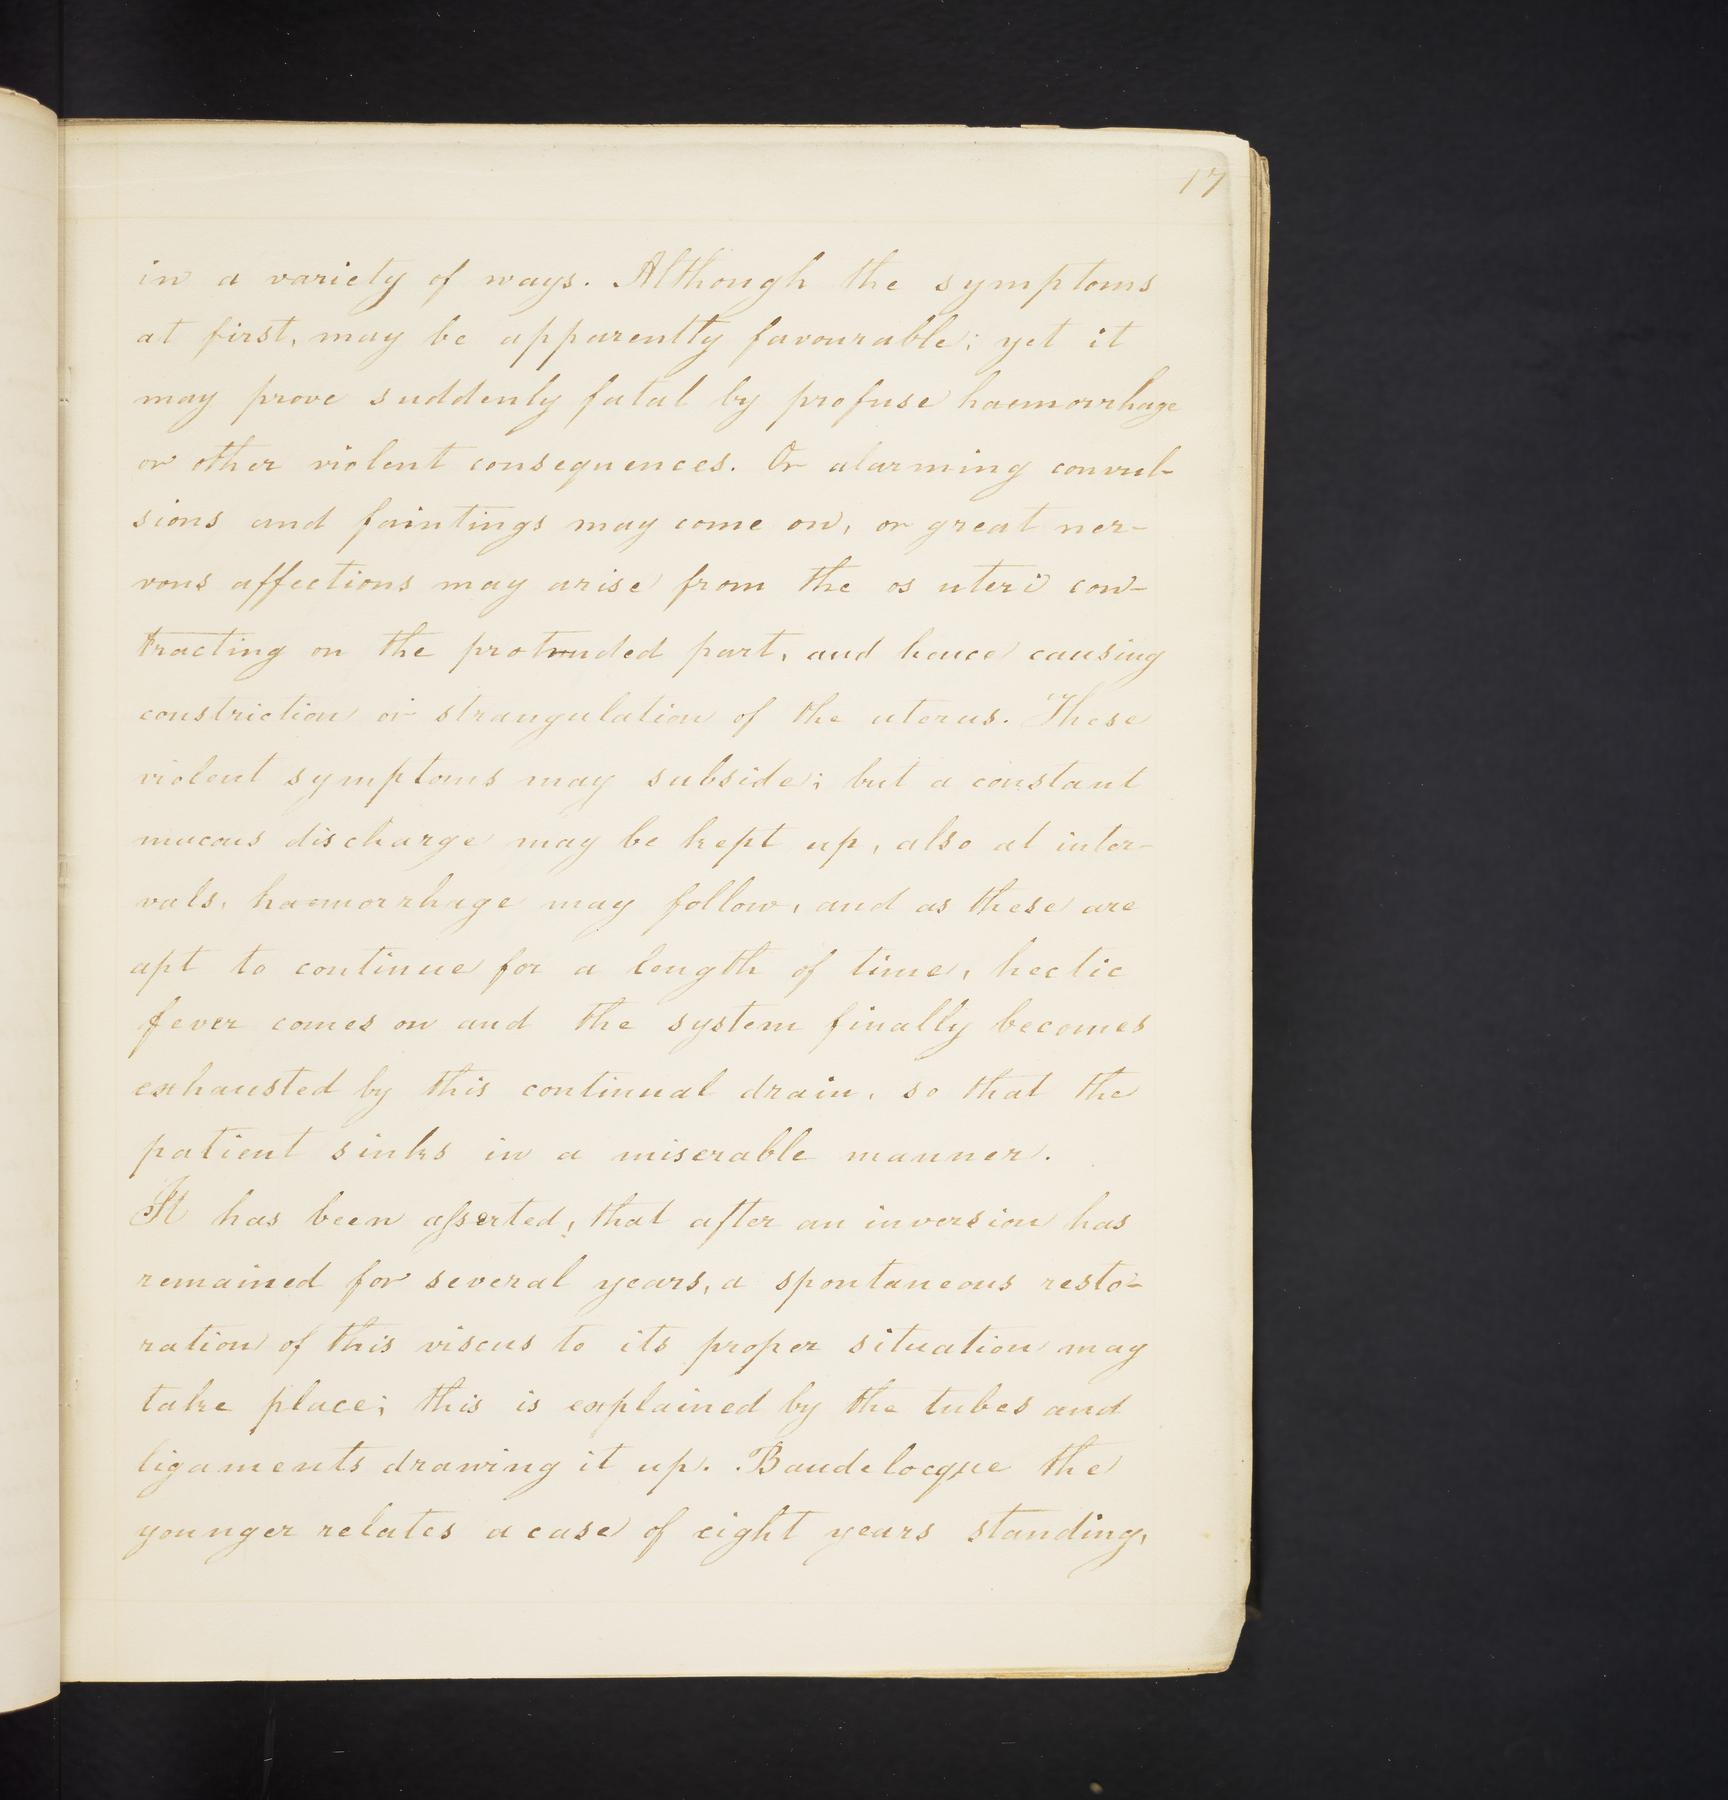 17
in a variety of ways. Although the symptoms
at first, may be apparently favourable; yet it
may prove suddenly fatal by profuse haemorrhage
or other violent consequences. Or alarming convul-
sions and faintings may come on, or great ner-
vous affections may arise from the os uteri con-
tracting on the protruded part, and hence causing
constriction or strangulation of the uterus. These
violent symptoms may subside; but a constant
mucous discharge may be kept up, also at inter-
vals, haemorrhage may follow, and as these are
apt to continue for a length of time, hectic
fever comes on and the system finally becomes
exhausted by this continual drain, so that the
patient sinks in a miserable manner.
It has been asserted, that after an inversion has
remained for several years, a spontaneous resto-
ration of this viscus to its proper situation may
take place; this is explained by the tubes and
ligaments drawing it up. Baudelocque the
younger relates a case of eight years standing,